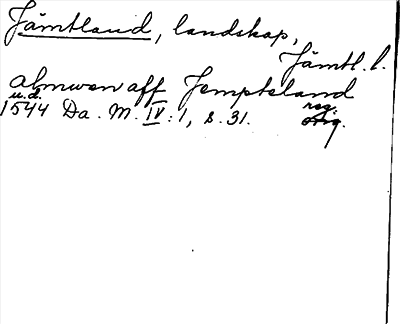 Jämtland, landskap,
Jämtl. l.
almwen aff Jempteland
u.d. reg.
1544 Da. M. IV: 1, s. 31. orig.